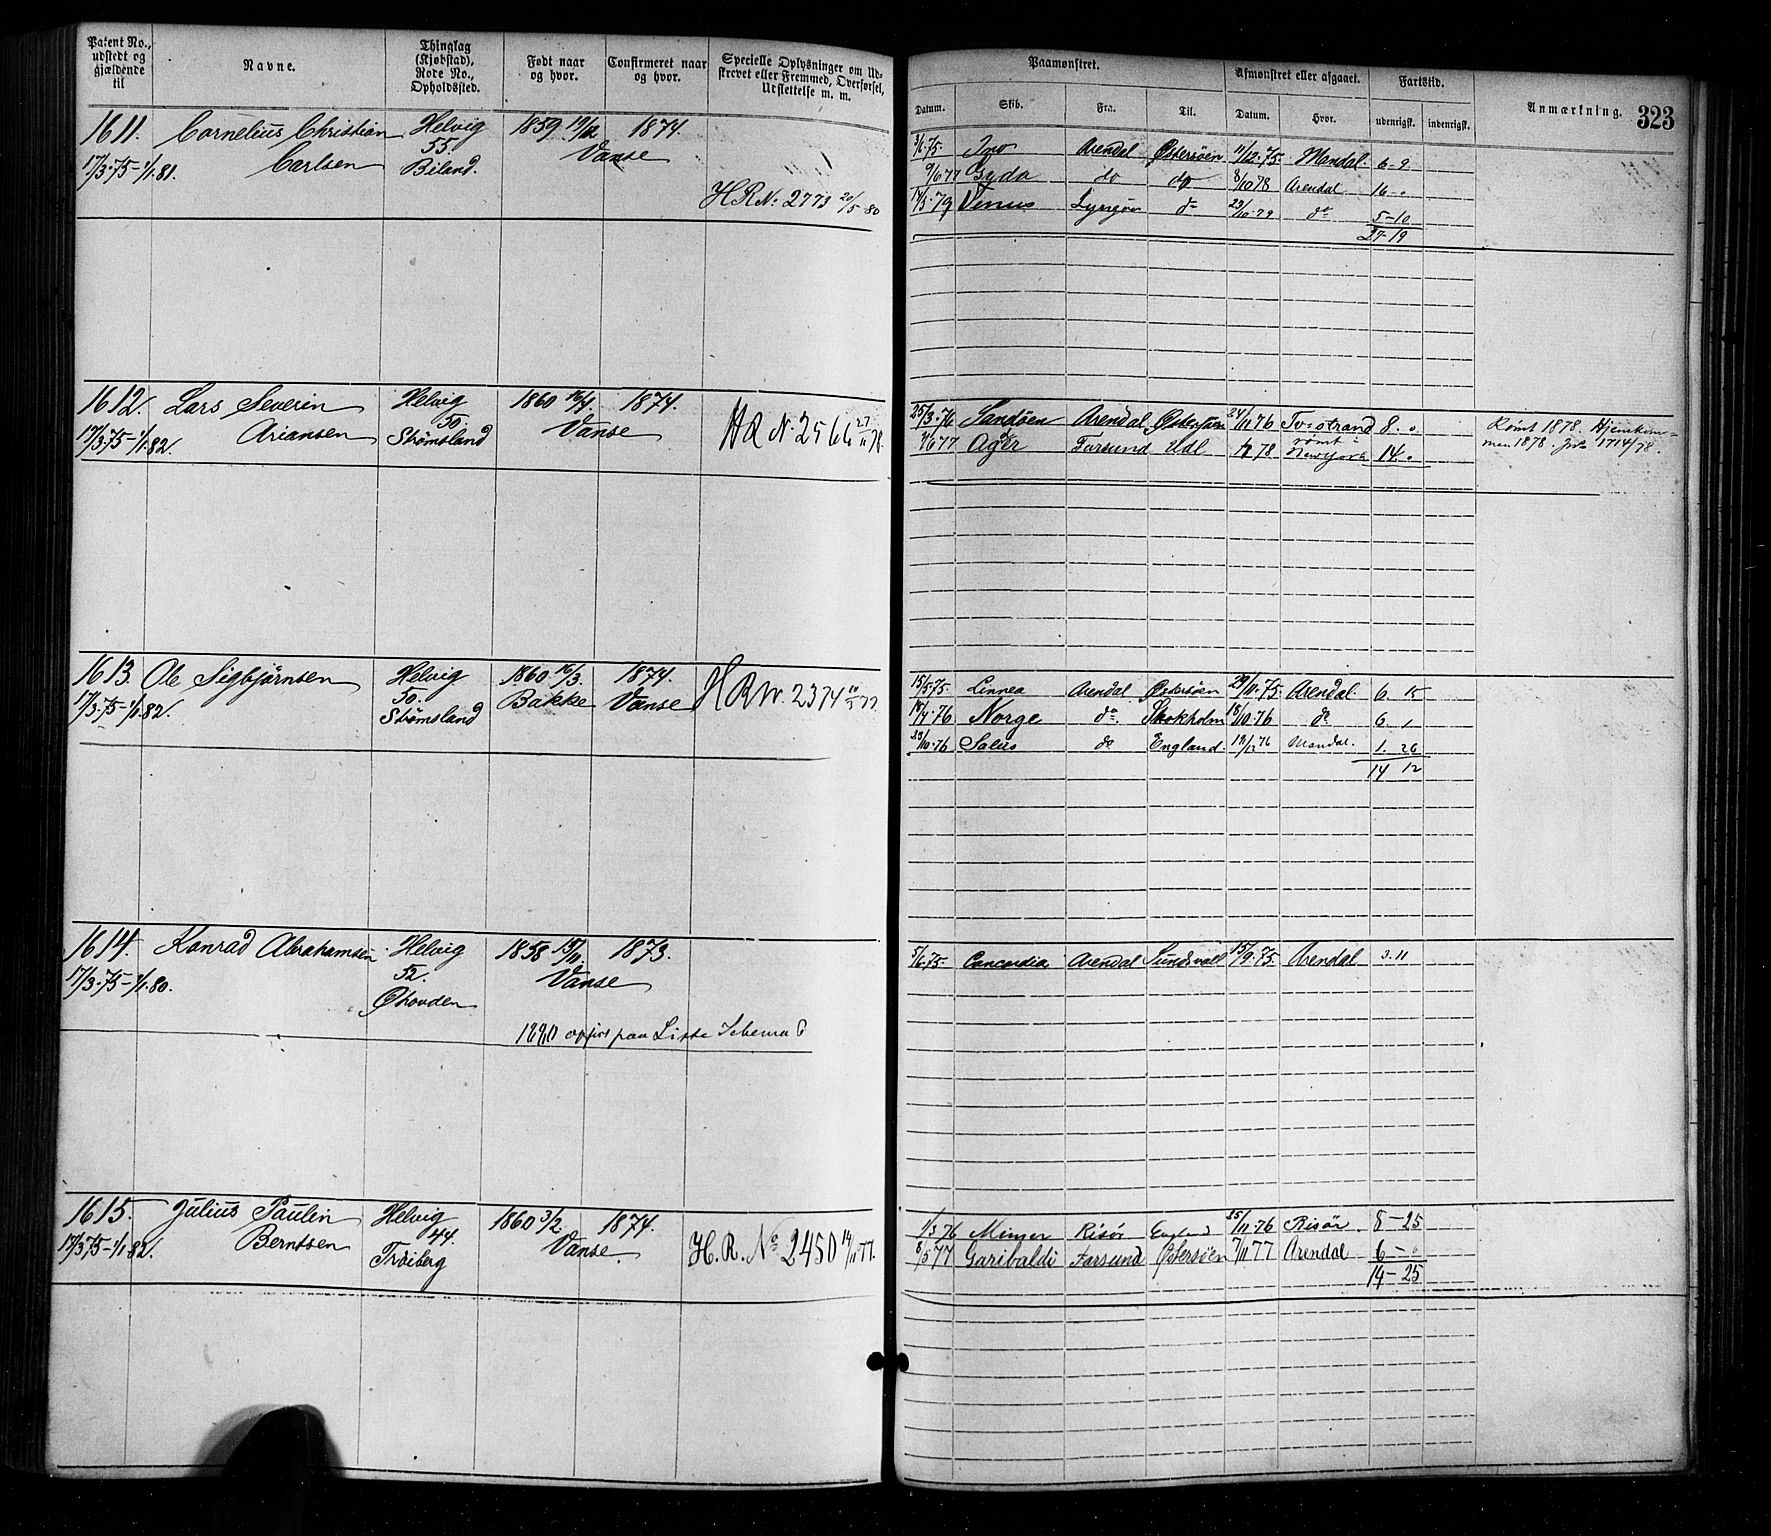 Patent No., udstedt og gjældende til
Navne.
Thinglag (Kjøbstad), Rode No., Opholdssted.
Født naar og hvor.
Confirmeret naar og hvor.
Specielle Oplysninger om Udskrevet eller Fremmed, Overførsel, Udslettelse m. m.
Paamønstret.
Afmønstret eller afgaaet.
Fartstid.
Anmærkning.
323
Datum. Skib. Fra. Til. Datum. Hvor. udenrigsk. indenrigsk.
1611. Cornelius Christian Helvig 1859 19/12 1874.
17/3.75-1/1.81. Carlsen 55 Biland. Vanse
H R No. 2773 20/5-80
3/6.75. Ino Arendal Østersøen 11/12.75. Mandal 6-9
9/6 77 Gyda do do 8/10 78 Arendal 16 "
17/5.79 Venus Lyngør do 23/10.79 do 5-10
27-19
1612. Lars Severin Helvig 1860 16/4 1874.
17/3.75-1/1.82. Ariansen 50. Strømsland Vanse
H R N. 2566 27/11 78.
25/3.76 Sandøen Arendal 24/11 76 8. "
7/6 77 Farsund Udl 78 rømt i Newyork 14 "
Rømt 1878. Hjemkom-
men 1878. 1714/78.
1613 Ole Sigbjørnsen Helvig 1860 16/3. 1874.
17/3.75-1/1.82. 50. Strømsland Bakke Vanse
H R N. 2374 77
15/5.75. Linnea Arendal Østersøen 29/11.75. Arendal 6 15
18/4.76 Norge do Stokholm 18/10.76 do 6. 1
23/10.76 Salus do England. 19/12 76 Mandal. 1. 26
14 12
1614. Konrad Abrahamsen Helvig 1858 15/11. 1873.
17/3.75-1/1.80. 52. Øhovden Vanse
1880 opført paa Liste Schema 6
5/6.75. Concordia Arendal Sundsvall 15/9.75. Arendal 3.11
1615. Julius Paulin Helvig 1860 3/2 1874.
17/3 75-1/1.82. Berntsen 44. Vanse
H. R. No 2450 14/11 77.
1/3 76 Mimer Risør England 25/11.76 Risør. 8-25
8/5 77 Garibaldi Farsund Østersøen 7/11 77 Arendal 6-"
14-25